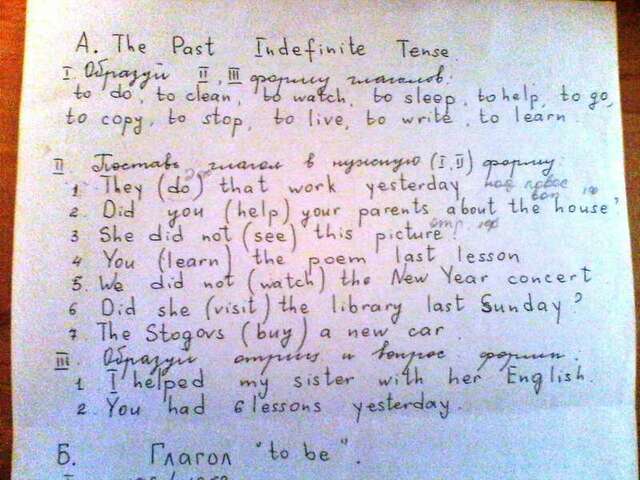 A. The Past Indefinite Tense
I. Образуй II, III форму глаголов:
to do, to clean, to watch, to sleep, to help, to go,
to copy, to stop, to live, to write, to learn.
II Поставь глагол в нужную (I, II) форму:
1 They (do) that work yesterday
2. Did you (help) your parents about the house?
3 She did not (see) this picture.
4 You (learn) the poem last lesson
5. We did not (watch) the New Year concert
6 Did she (visit) the library last Sunday?
7 The Stogovs (buy) a new car.
III. Образуй отриц и вопрос формы:
1 I helped my sister with her English.
2. You had 6 lessons yesterday.
Б. Глагол "to be".